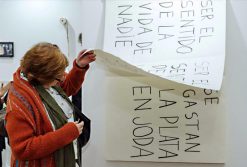 SER EL
SENTIDO
DE LA
VIDA DE
NADIE
SE
GASTAN
LA PLATA
EN JODA